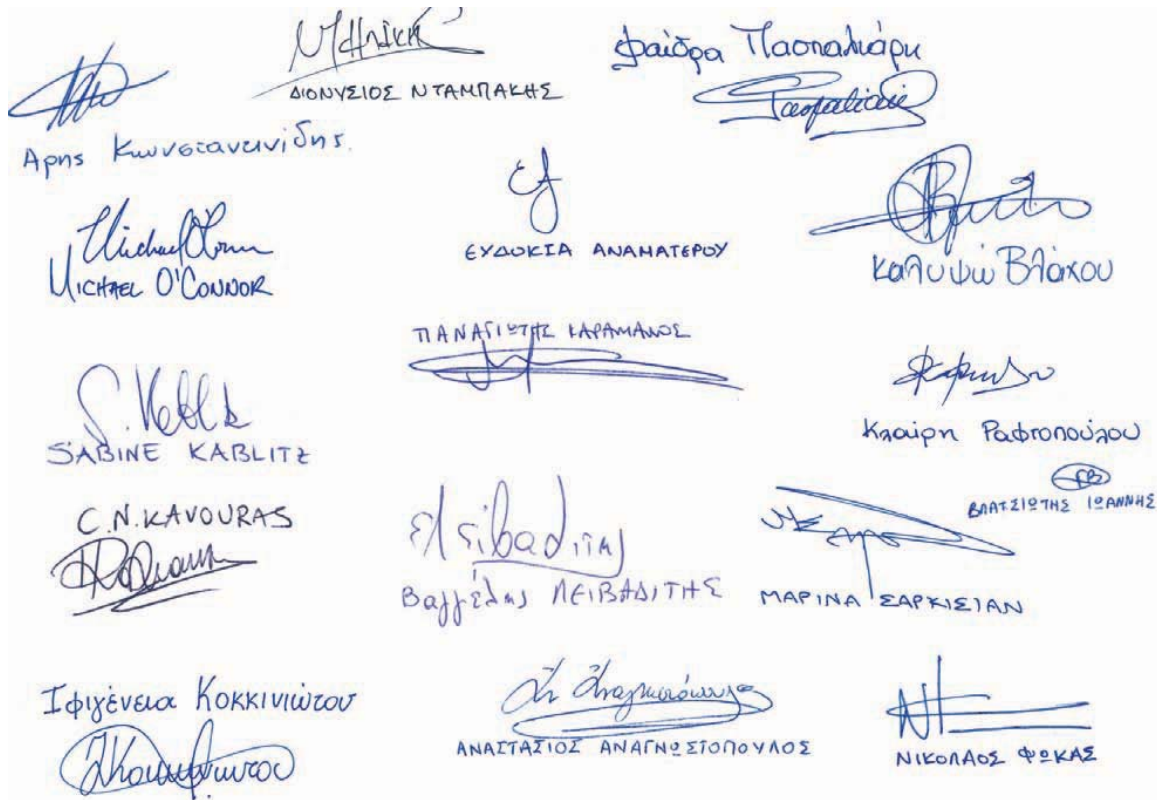 ΔΙΟΝΥΣΙΟΣ ΝΤΑΜΠΑΚΗΣ
Φαίδρα Πασπαλιάρη
Αρης Κωνσταντινίδης.
Michael O'Connor
MICHAEL O'CONNOR
ΕΥΔΟΚΙΑ ΑΝΑΜΑΤΕΡΟΥ
Καλυψώ Βλάχου
ΠΑΝΑΓΙΩΤΗΣ ΚΑΡΑΜΑΝΟΣ
SABINE KABLITZ
Κλαίρη Ραφτοπούλου
ΒΛΑΤΣΙΩΤΗΣ ΙΩΑΝΝΗΣ
C.N. KAVOURAS
Βαγγέλης ΛΕΙΒΑΔΙΤΗΣ
ΜΑΡΙΝΑ ΣΑΡΚΙΣΙΑΝ
Ιφιγένεια Κοκκινιώτου
ΑΝΑΣΤΑΣΙΟΣ ΑΝΑΓΝΩΣΤΟΠΟΥΛΟΣ
ΝΙΚΟΛΑΟΣ ΦΩΚΑΣ